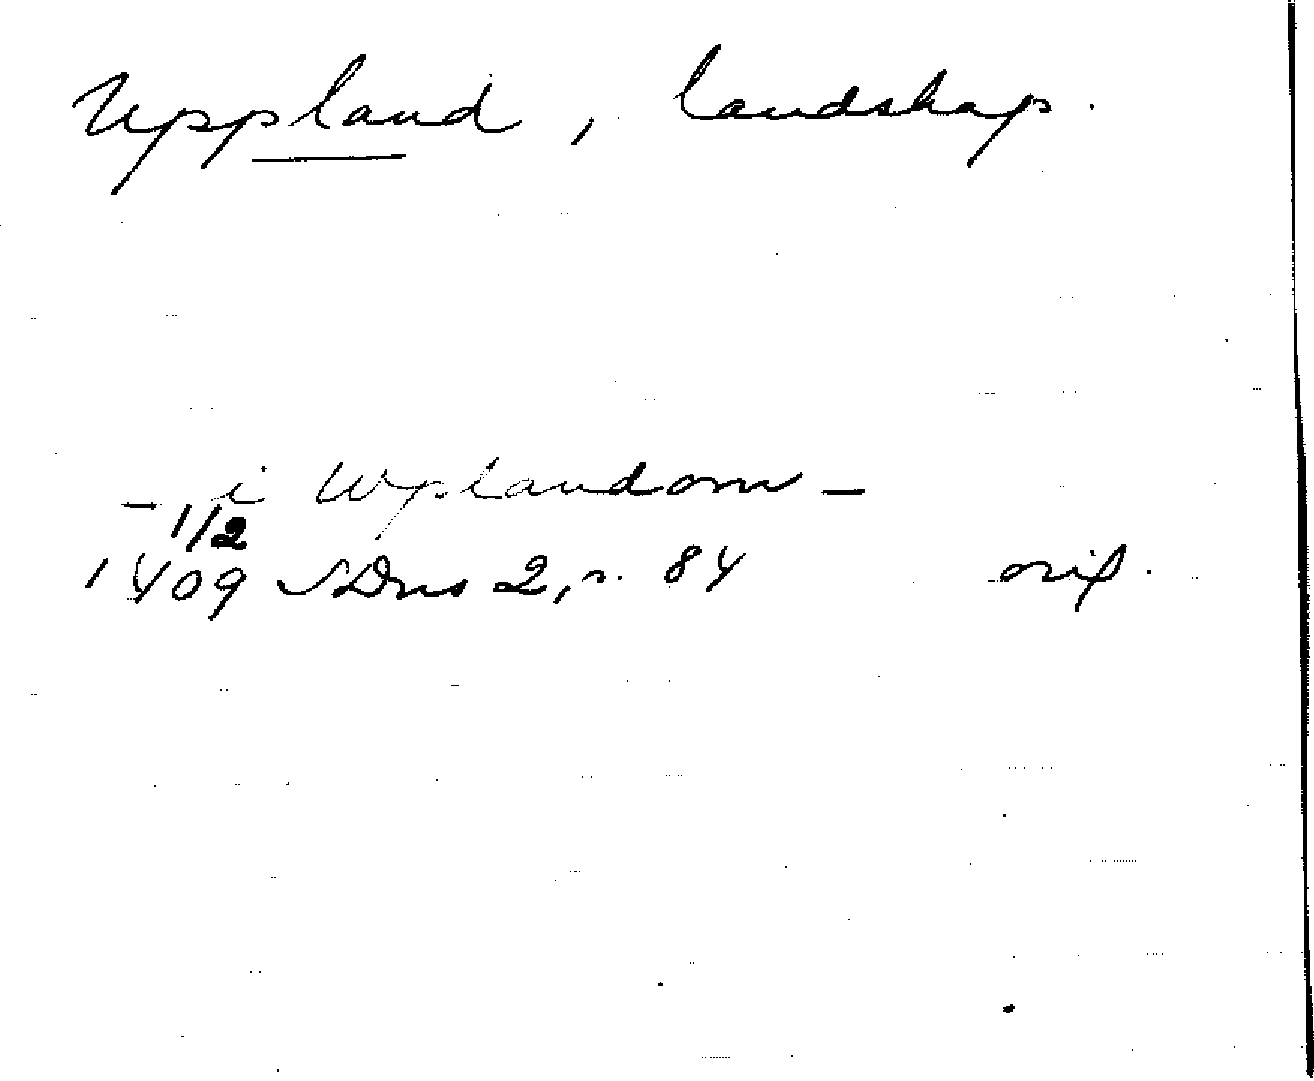 Uppland, landskap.
- i Wplandom -
1/2
1409 SDns 2, s. 84 orig.